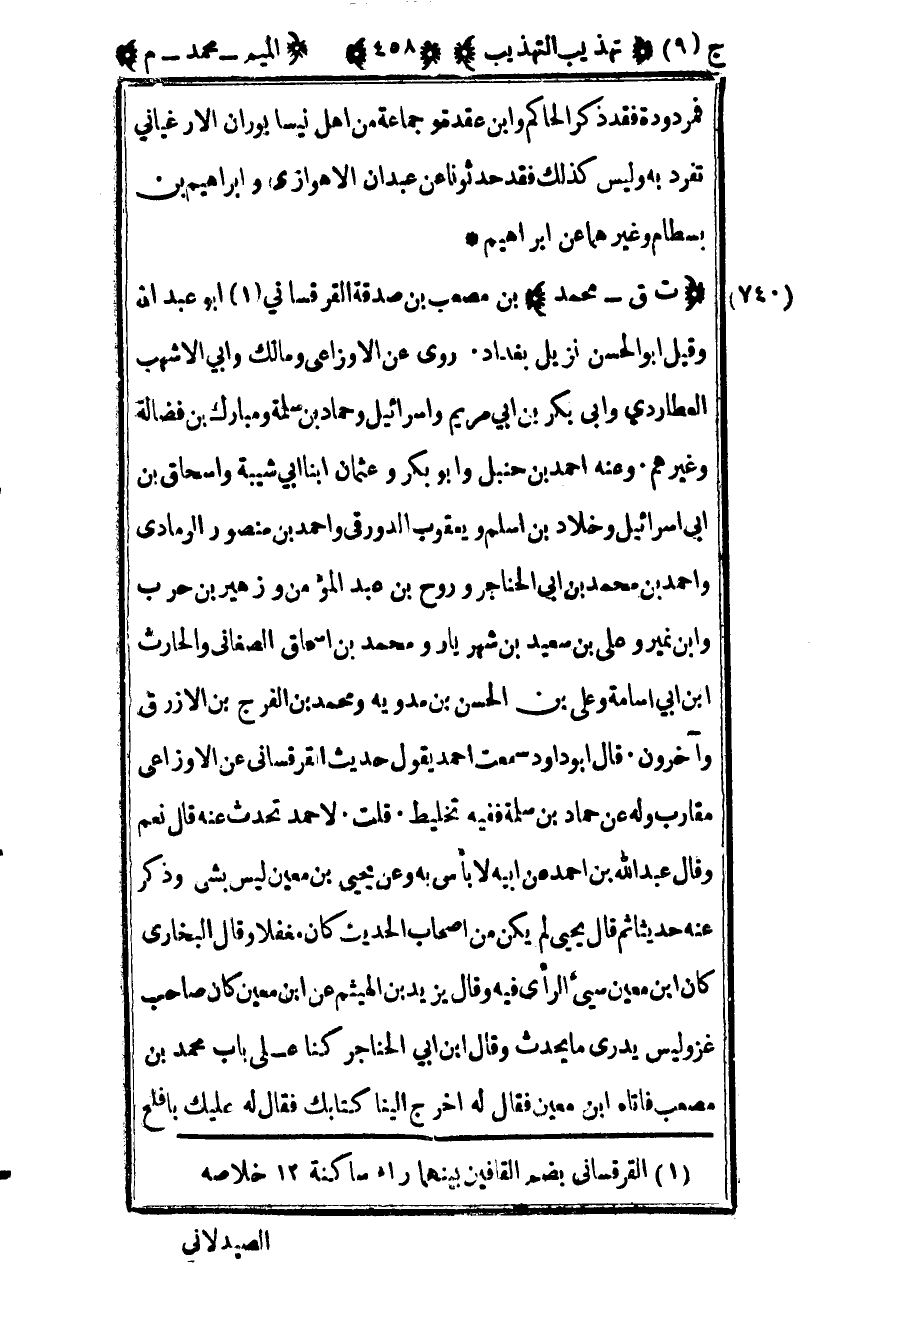 ج (٩) ﴿ تهذيب التهذيب ﴾ ﴿ ٤٥٨ ﴾ ﴿ الميم ـ محمد ـ م ﴾
فمردودة فقد ذكر الحاكم وابن عقدة و جماعة من اهل نيسا بوران الارغياني
تفرد به وليس كذلك فقد حدثونا عن عبدان الاهوازى و ابراهيم بن
بسطام وغير هما عن ابراهيم *
(٧٤٠) ﴿ ت ق ـ محمد ﴾ بن مصعب بن صدقة القرقسا ني (١) ابو عبد الله
وقيل ابوالحسن نزيل بغداد · روى عن الاوزاعى ومالك وابي الاشهب
العطاردي وابى بكر بن ابي مريم واسرائيل و حماد بن سلمة ومبارك بن فضالة
وغير هم · وعنه احمد بن حنبل وابو بكر و عثمان ابنا ابي شيبة واسحاق بن
ابي اسرائيل وخلاد بن اسلم و يعقوب الدورقى واحمد بن منصور الرمادى
واحمد بن محمد بن ابي الحناجر و روح بن عبد المؤ من و زهير بن حرب
وابن نمير و على بن سعيد بن شهريار و محمد بن اسحاق الصغانى والحارث
ابن ابي اسامة وعلى بن الحسن بن مدويه ومحمد بن الفرج بن الازرق
وآخرون · قال ابوداود سمعت احمد يقول حديث القرقسانى عن الاوزاعى
مقارب وله عن حماد بن سلمة ففيه تخليط · قلت · لاحمد تحدث عنه قال نعم
وقال عبدالله بن احمد عن ابيه لا بأس به وعن يحيى بن معين ليس بشى وذكر
عنه حديثا ثم قال يحيى لم يكن من اصحاب الحديث كان مغفلا وقال البخارى
كان ابن معين سيئ الرأى فيه وقال يزيد بن الهيثم عن ابن معين كان صاحب
غزو ليس يدرى ما يحدث وقال ابن ابي الحناجر كنا عـلى باب محمد بن
مصعب فاتاه ابن معين فقال له اخرج الينا كتابك فقال له عليك بافلح
(١) القرقسانى بضم القافين بينهما راء ساكنة ١٢ خلاصه
الصيدلاني